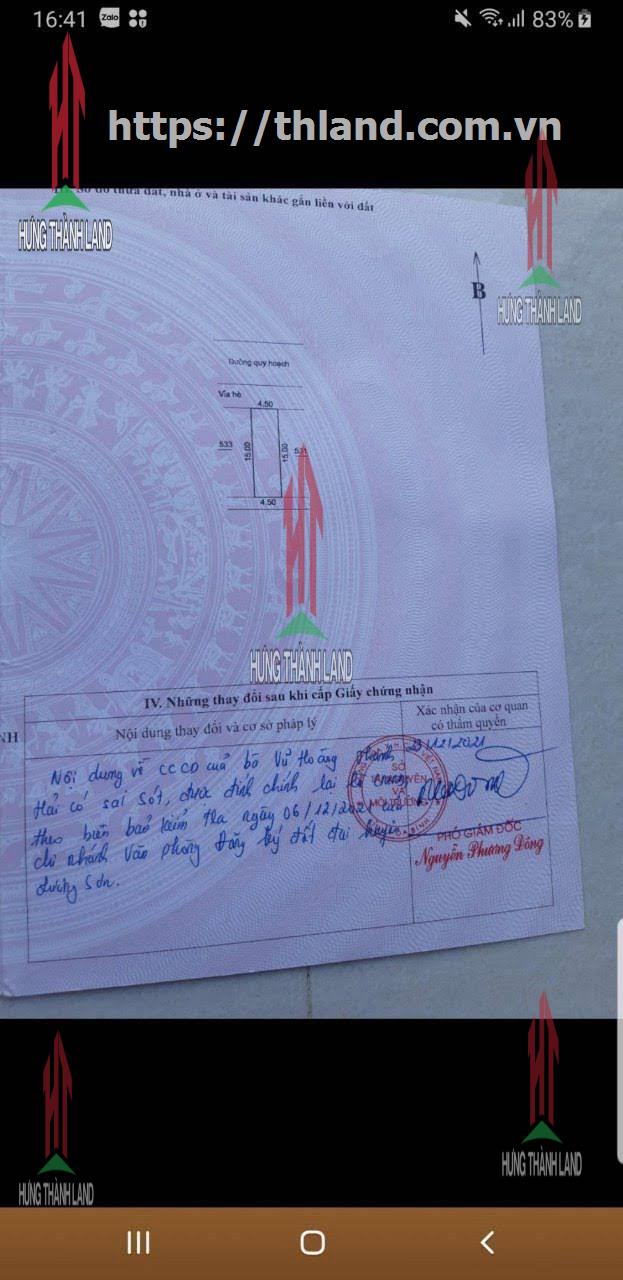 16:41 Zalo 83%
https://thland.com.vn
Sơ đồ thửa đất, nhà ở và tài sản khác gắn liền với đất
HƯNG THÀNH LAND
B
HƯNG THÀNH LAND
Đường quy hoạch
Vỉa hè
4.50
533 15.00 15.00
4.50
HƯNG THÀNH LAND
IV. Những thay đổi sau khi cấp Giấy chứng nhận
NH
Nội dung thay đổi và cơ sở pháp lý
Xác nhận của cơ quan
có thẩm quyền
Nội dung về CCCD của bà Vũ Hoàng
Hải có sai sót, được đính chính lại
theo biên bản kiểm tra ngày 06/12/2021 của
chi nhánh Văn phòng Đăng ký đất đai huyện
Lương Sơn.
23/12/2021
SỞ
TÀI NGUYÊN
VÀ
MÔI TRƯỜNG
PHÓ GIÁM ĐỐC
Nguyễn Phương Đông
HƯNG THÀNH LAND
HƯNG THÀNH LAND